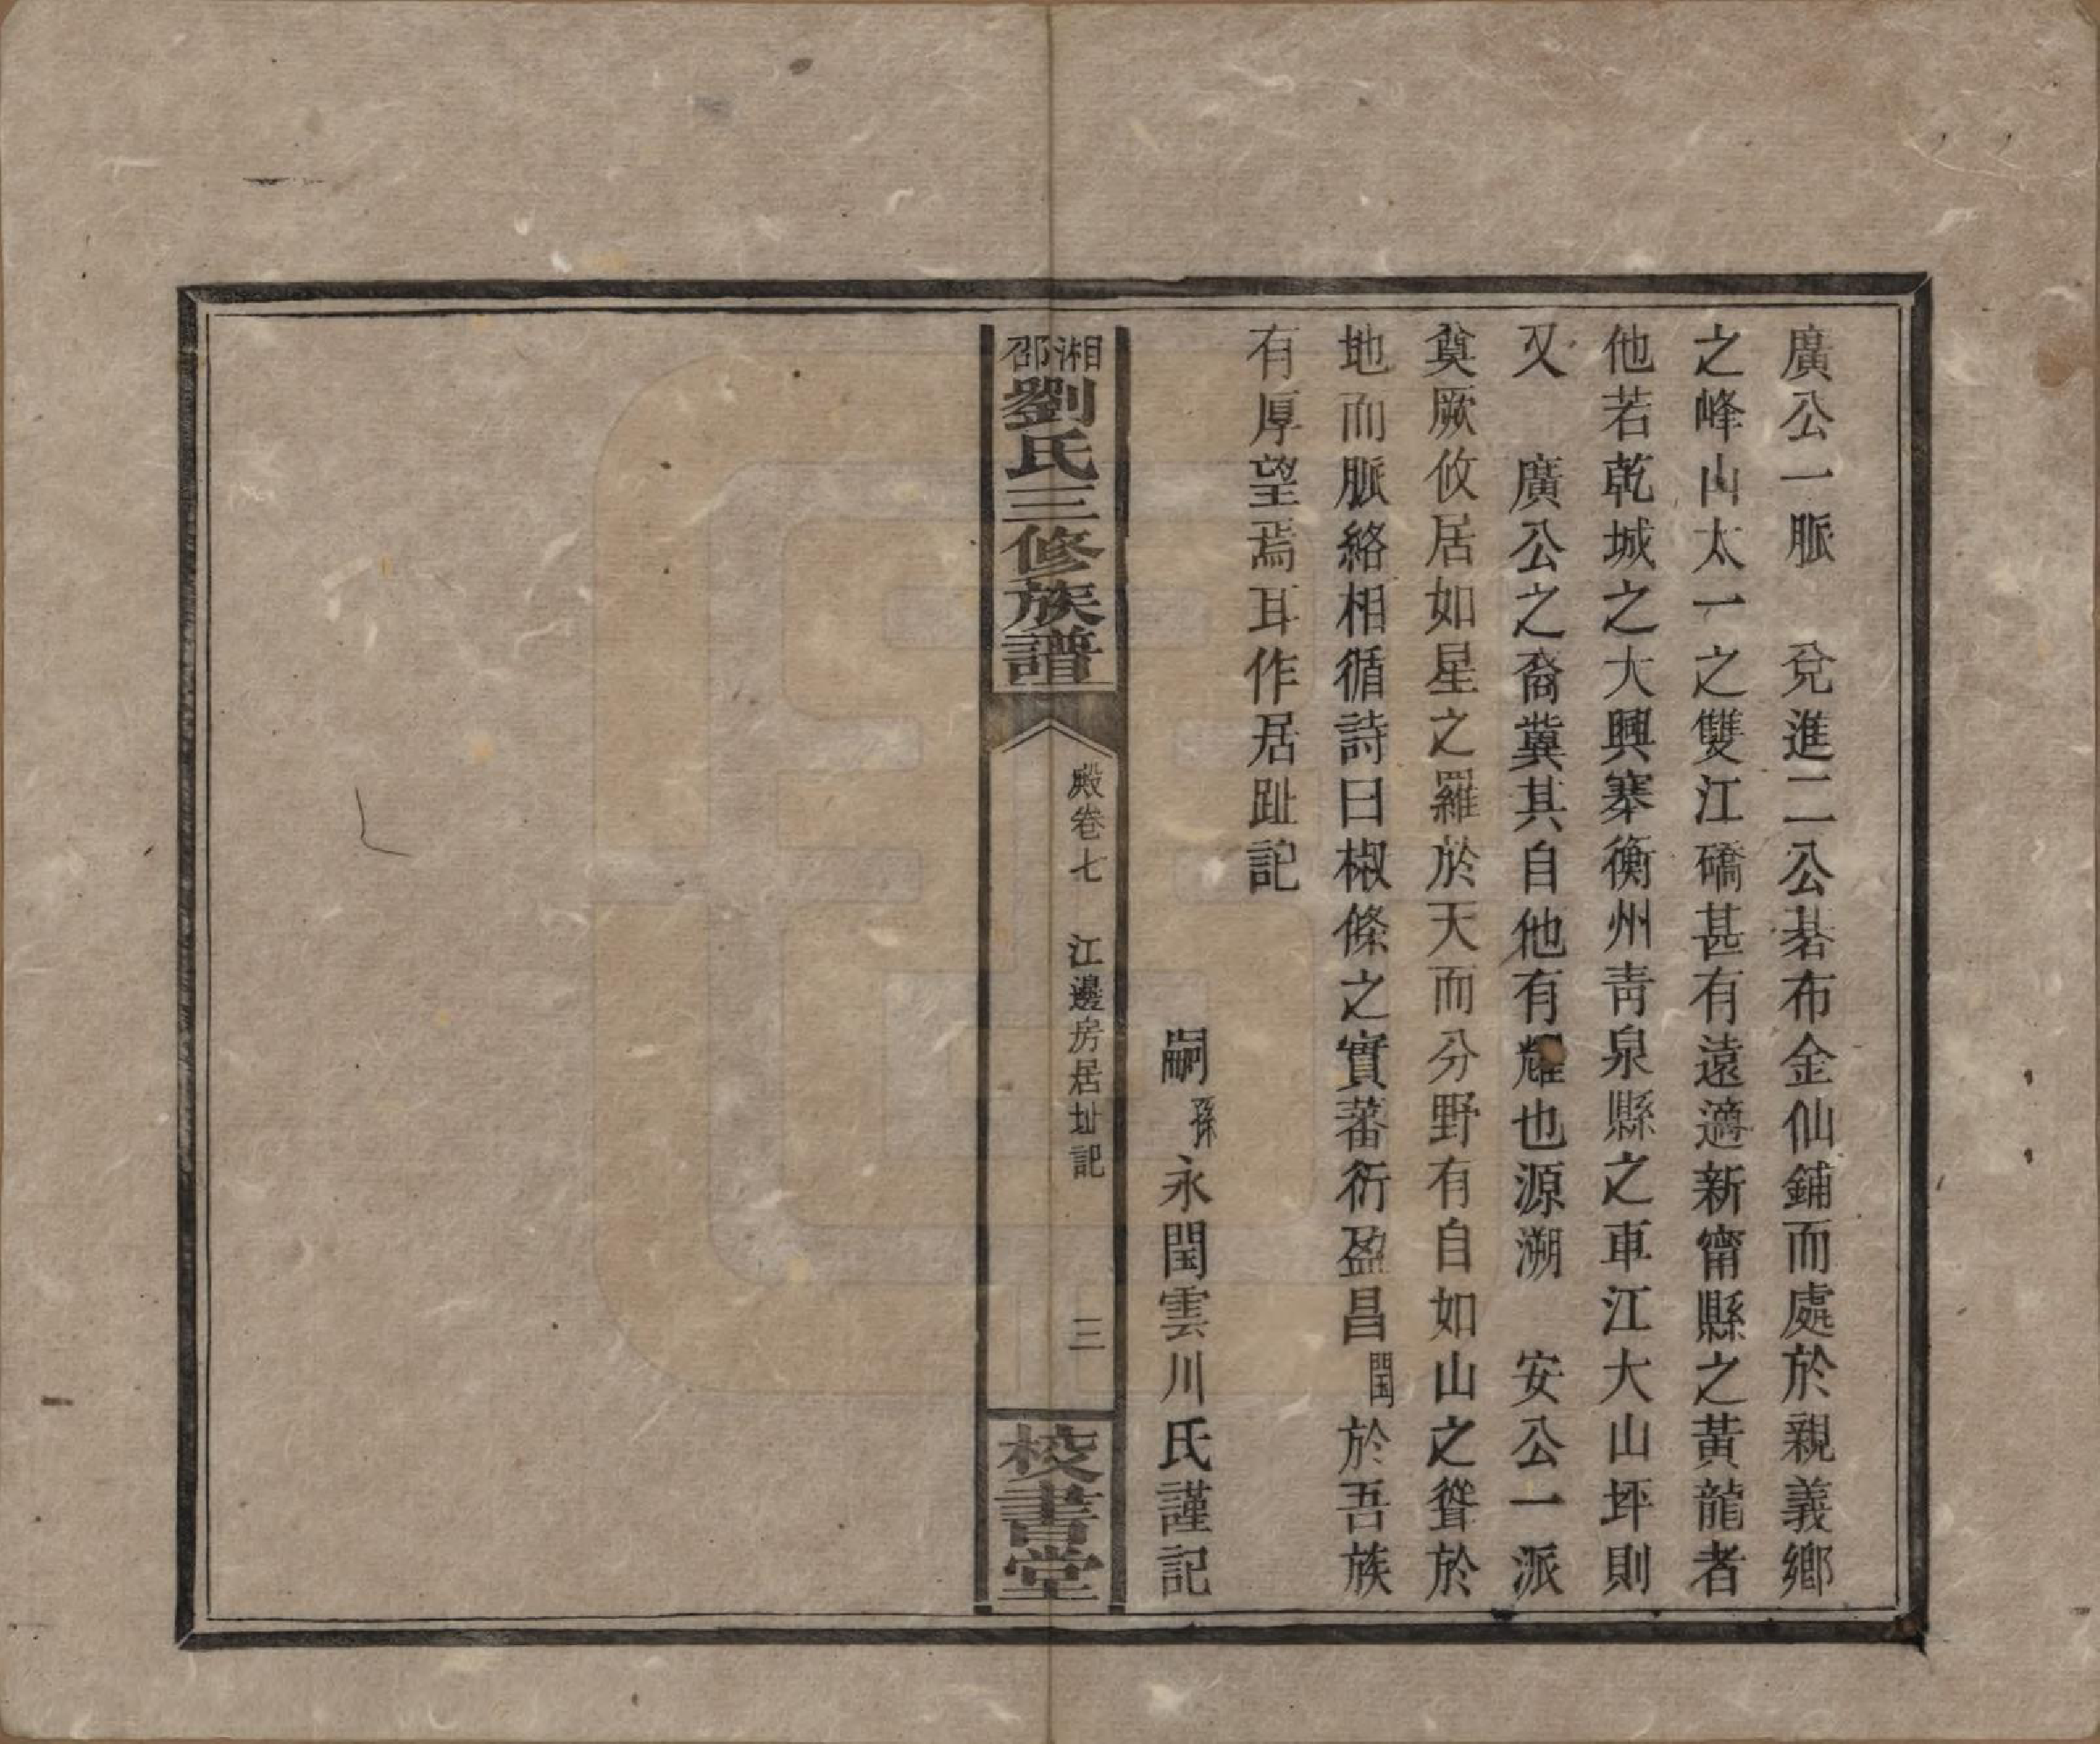 廣公一脈　兌進二公碁布金仙鋪而處於親義鄉
之峰山太一之雙江礄甚有遠適新甯縣之黃龍者
他若乾城之大興寨衡州靑泉縣之車江大山坪則
又　廣公之裔冀其自他有耀也源溯　安公一派
奠厥攸居如星之羅於天而分野有自如山之聳於
地而脈絡相循詩曰椒條之實蕃衍盈昌閏於吾族
有厚望焉耳作居趾記
嗣孫永閏雲川氏謹記
湘邵劉氏三修族譜
殿卷七　江邊房居址記　三
校書堂